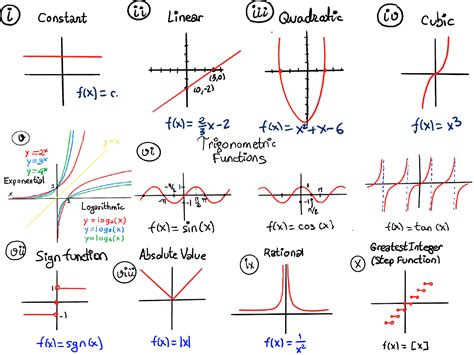 i Constant
f(x) = c.
ii Linear
(3,0)
(0,-2)
f(x) = 2/3 x - 2
iii Quadratic
f(x) = x² + x - 6
iv Cubic
f(x) = x³
v
y = 2ˣ
y = 3ˣ
y = 4ˣ
y = x
Exponential
1
1
Logarithmic
y = log₂(x)
y = log₃(x)
y = log₄(x)
vi Trigonometric
Functions
-π/2
1
-π
π
-1
π/2
f(x) = sin(x)
1
π
-1
π/2
f(x) = cos(x)
f(x) = tan(x)
vii Sign function
1
-1
f(x) = sgn(x)
viii Absolute Value
f(x) = |x|
ix Rational
f(x) = 1/x²
x Greatest Integer
(Step Function)
f(x) = [x]